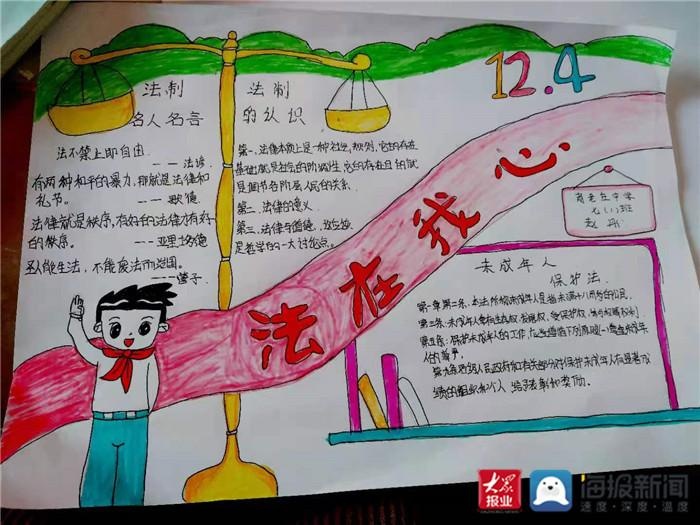 12.4
法制
名人名言
法不禁止即自由.
——法谚
有两种和平的暴力,那就是法律和
礼节。
——歌德
法律就是秩序,有好的法律才有好
的秩序。
——亚里士多德
圣人能生法,不能废法而治国。
——管子
法制
的认识
第一、法律本质上是一种社会规则,它的存在
基础就是社会的阶级性,它的存在目的就
是调节各阶层人民的关系.
第二、法律的意义
第三、法律与道德,
是哲学的一大讨论点。
法在我心
七(1)班
未成年人
保护法.
第一章第二条、本法所称未成年人是指未满十八周岁的公民,
第三条、未成年人享有生存权、发展权、受保护权、参与权等权利
第五条:保护未成年人的工作,应当遵循下列原则:一尊重未成年
人的尊严,
各级人民政府和有关部门对保护未成年人有显著成
绩的组织和个人,给予表彰和奖励。
大众
报业
海报新闻
速度·深度·温度